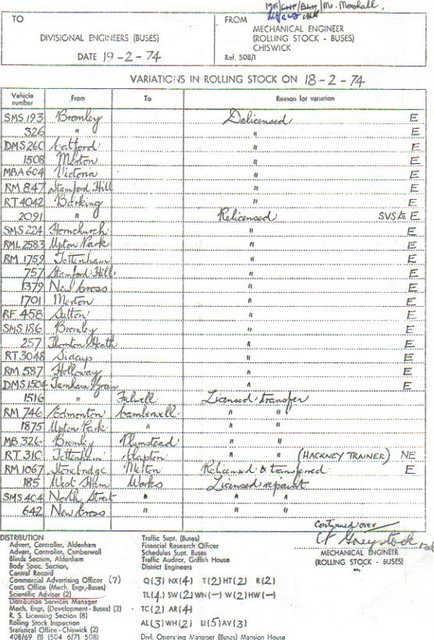 TO
DIVISIONAL ENGINEERS (BUSES)
DATE 19-2-74
FROM
MECHANICAL ENGINEER
(ROLLING STOCK - BUSES)
CHISWICK
Ref. 508/1
VARIATIONS IN ROLLING STOCK ON 18-2-74
Vehicle number From To Reason for variation
SMS 193 Bromley Delicensed E
326 " " E
DMS 260 Catford " E
1508 Merton " E
MBA 604 Victoria " E
RM 847 Stamford Hill " E
RT 4042 Barking " E
2091 " Relicensed E
SMS 224 Hornchurch " E
RML 2583 Upton Park " E
RM 1759 Tottenham " E
757 Stamford Hill " E
1379 New Cross " E
1701 Merton " E
RF 458 Sutton " E
SMS 186 Bromley " E
257 Thornton Heath " E
RT 3048 Sidcup " E
RM 587 Holloway " E
DMS 1504 Turnham Green " E
1516 " Fulwell Licensed transfer
RM 746 Edmonton Camberwell " "
1875 Upton Park " " "
MB 326 Bromley Plumstead " "
RT 310 Tottenham Clapton " " (HACKNEY TRAINER) NE
RM 1067 Stonebridge Merton Relicensed & transferred E
185 West Ham Works Licensed repaint
SMS 404 North Street " " "
642 New Cross " " "
Continued over
MECHANICAL ENGINEER
(ROLLING STOCK - BUSES)
DISTRIBUTION
Advert. Controller, Aldenham
Advert. Controller, Camberwell
Blinds Section, Aldenham
Body Spec. Section,
Central Record
Commercial Advertising Officer (7)
Costs Office (Mech. Engr-Buses)
Scientific Adviser (2)
Distribution Services Manager
Mech. Engr. (Development - Buses) (2)
R. S. Licensing Section (8)
Rolling Stock Inspection
Statistical Office - Chiswick (2)
408/69 (1) (504 6/71 508)
Traffic Supt. (Buses)
Financial Research Officer
Schedules Supt. Buses
Traffic Auditor, Griffith House
District Engineers
Q(3) NX(4) T(2) HT(2) R(2)
TL(4) SW(2) WN(-) W(2) HW(-)
TC(2) AR(4)
AL(3) WH(2) U(5) AV(3)
Divl. Operating Manager (Buses) Mansion House